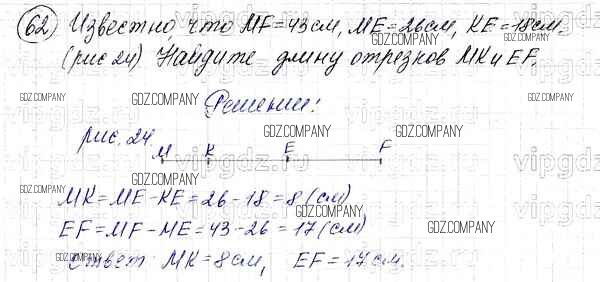 62) Известно, что MF=43см, ME=26см, KE=18см.
(рис 24) Найдите длину отрезков MK и EF.
GDZ.COMPANY GDZ.COMPANY GDZ.COMPANY
Решение:
GDZ.COMPANY GDZ.COMPANY
рис. 24
vipgdz.ru vipgdz.ru
M K E F
GDZ.COMPANY
MK=ME-KE=26-18=8(см)
GDZ.COMPANY GDZ.COMPANY
EF=MF-ME=43-26=17(см)
vipgdz.ru vipgdz.ru
GDZ.COMPANY GDZ.COMPANY
Ответ MK=8см, EF=17см.